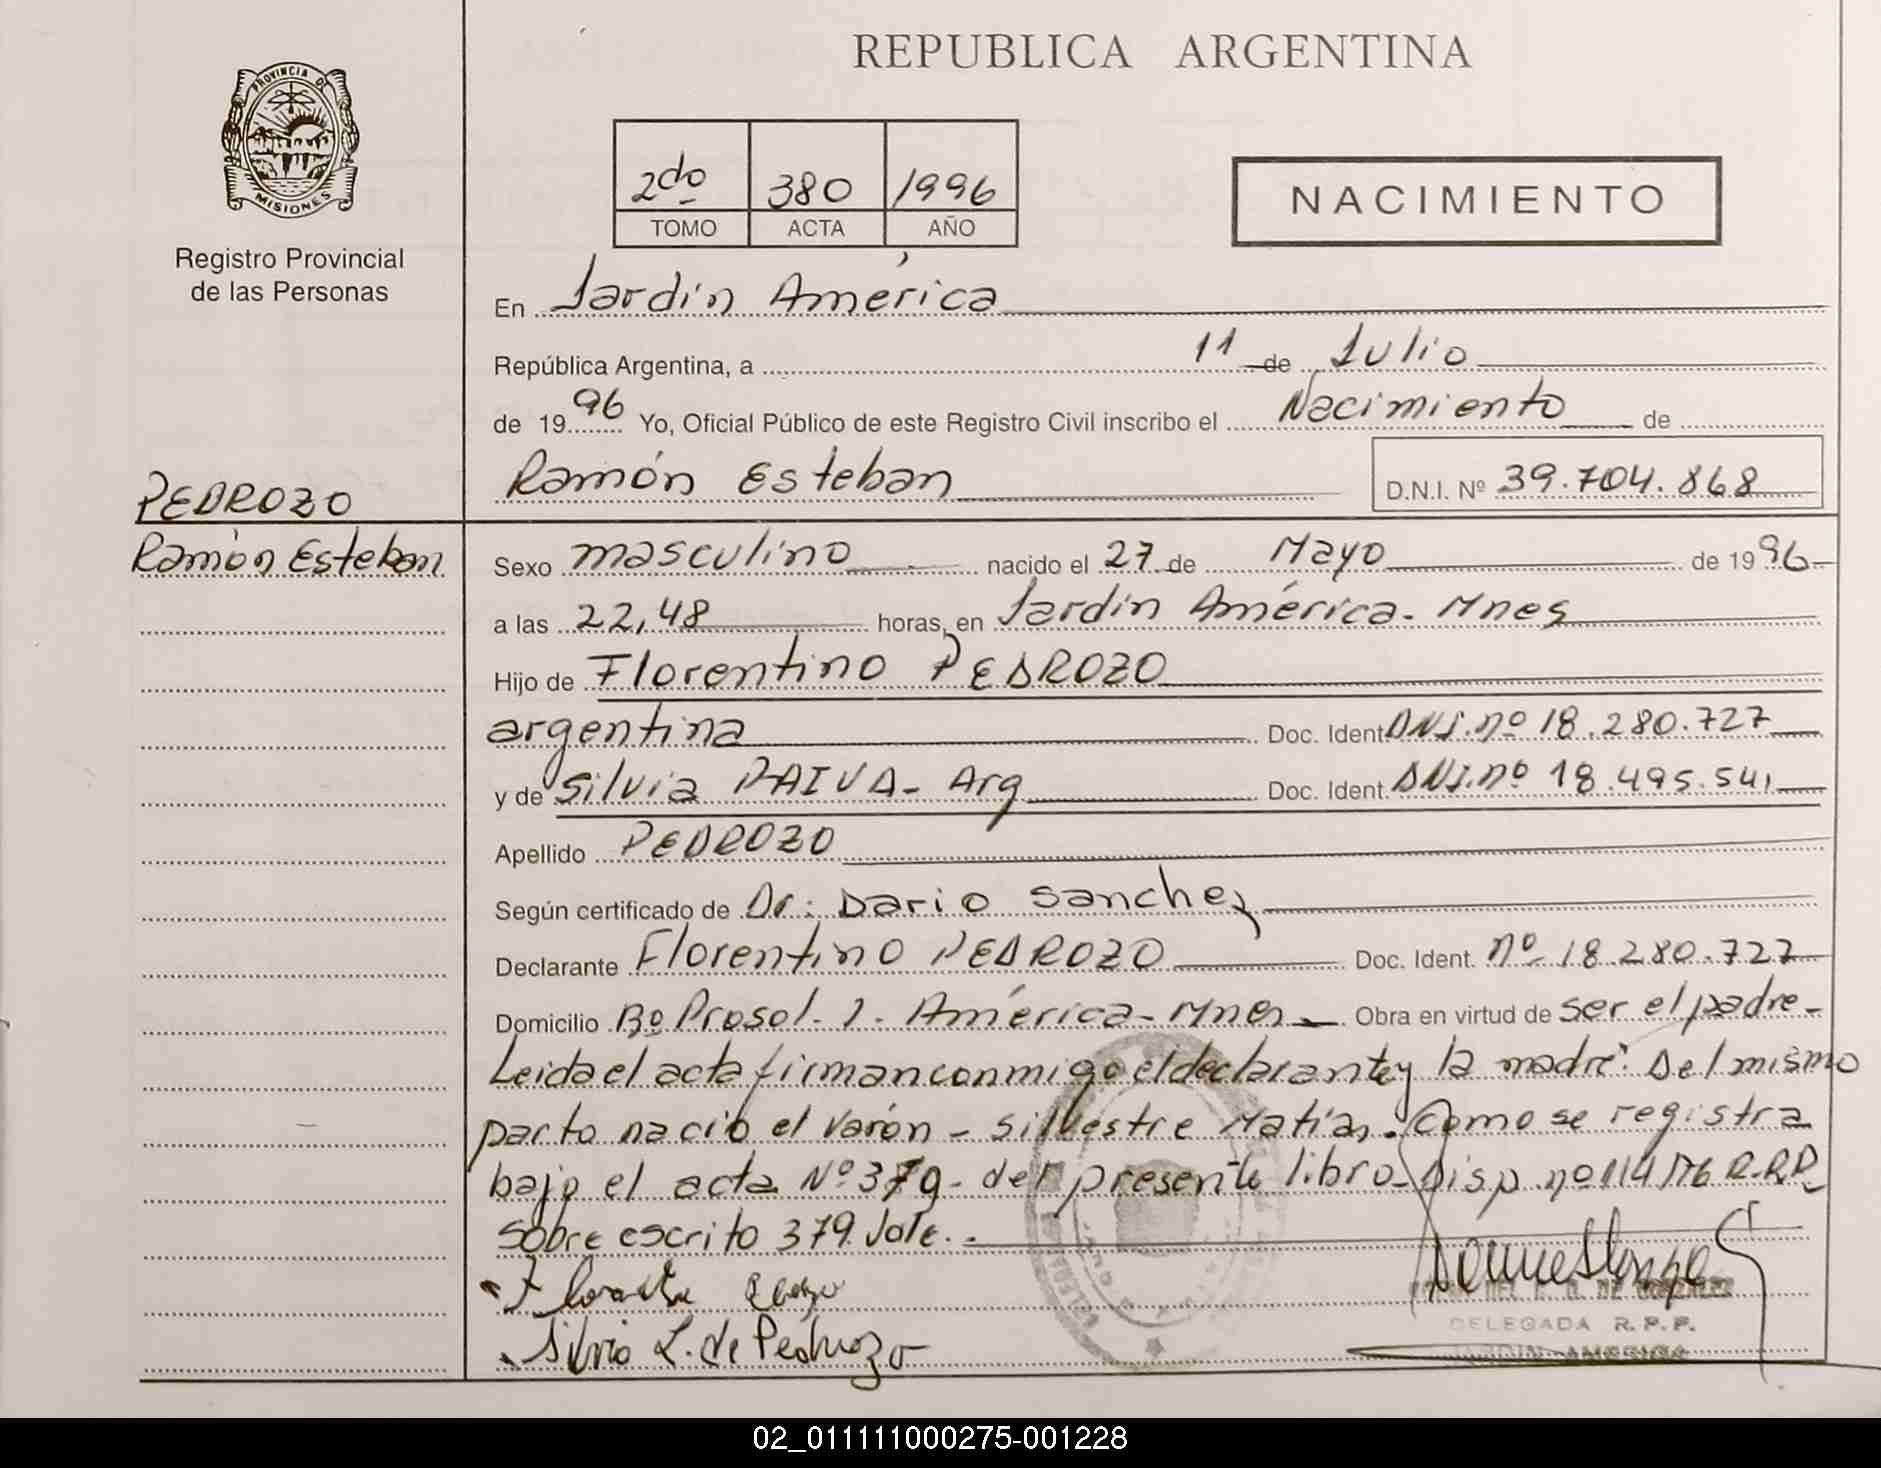 REPUBLICA ARGENTINA
PROVINCIA DE
MISIONES
Registro Provincial
de las Personas
2do 380 1996
TOMO ACTA AÑO
NACIMIENTO
En Jardín América
República Argentina, a 11 de Julio
de 1996 Yo, Oficial Público de este Registro Civil inscribo el Nacimiento de
Ramón Esteban D.N.I. Nº 39.704.868
PEDROZO
Ramón Esteban
Sexo masculino nacido el 27 de Mayo de 1996
a las 22,48 horas, en Jardín América. Mnes
Hijo de Florentino PEDROZO
argentina Doc. Ident. DNI. nº 18.280.727
y de Silvia PAIVA - Arg Doc. Ident. DNI. nº 18.495.541
Apellido PEDROZO
Según certificado de Dr: Dario Sanchez
Declarante Florentino PEDROZO Doc. Ident. nº 18.280.727
Domicilio Bº Prosol. J. América - Mnes Obra en virtud de ser el padre -
Leida el acta firman conmigo el declarante y la madre: Del mismo
parto nació el varón - Silvestre Matías. Como se registra
bajo el acta Nº 379 - del presente libro - Disp. nº 114/76 R.R.P
sobre escrito 379 Vale.
Silvia L. de Pedrozo
DELEGADA R.P.P.
JARDIN AMERICA
02_011111000275-001228